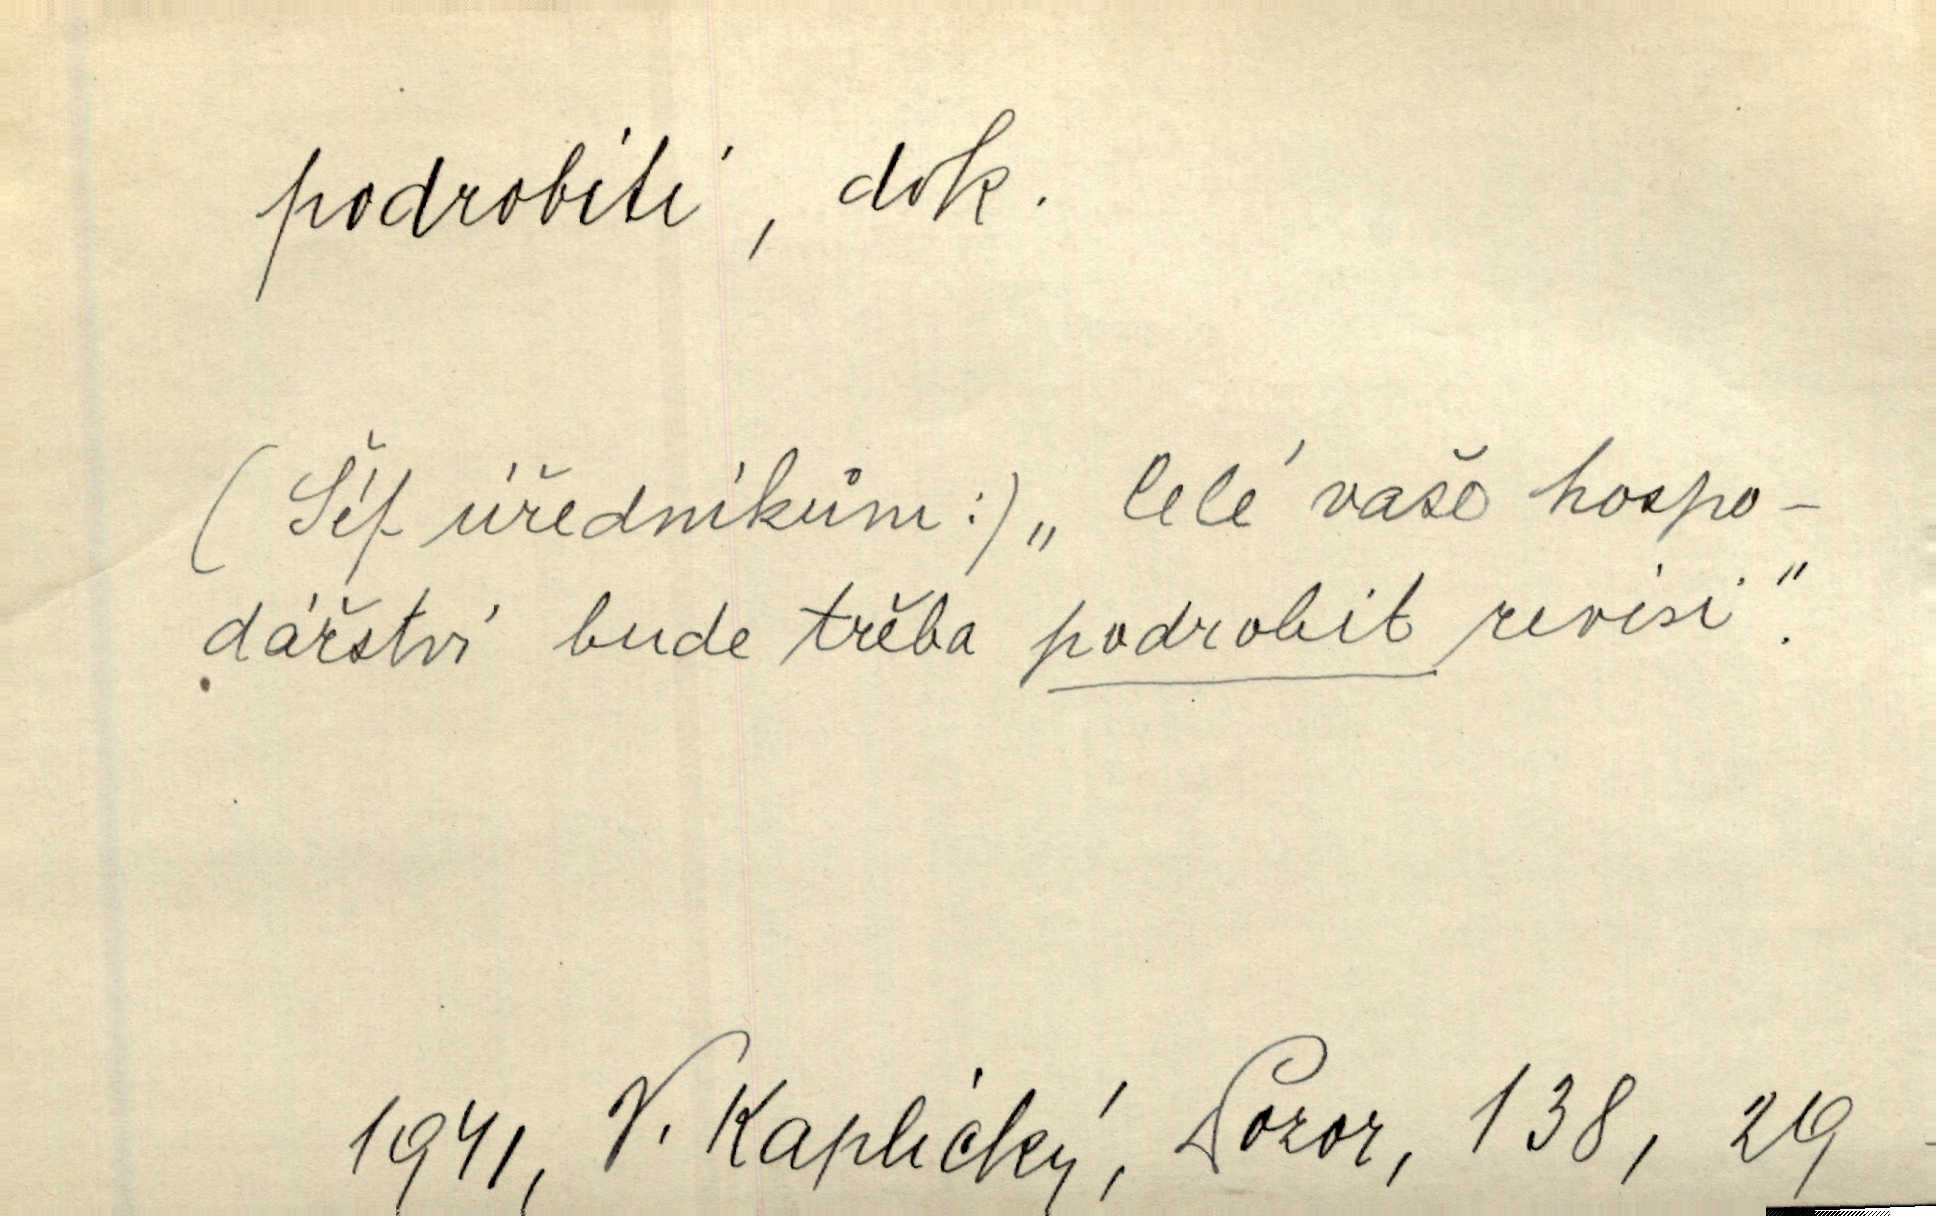 podrobiti, dok.
(Šéf úředníkům:) „Celé vaše hospo-
dářství bude třeba podrobit revisi".
1941, V. Kaplický, Pozor, 138, 29